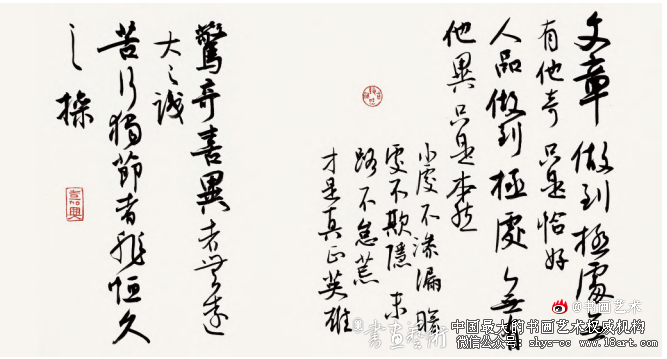 文章做到極處無
有他奇只是恰好
人品做到極處無有
他異只是本然
小處不滲漏暗
處不欺隱末
路不怠荒
才是真正英雄
驚奇喜異者無遠
大之識
苦行獨節者非恒久
之操
@书画艺术
中国最大的书画艺术权威机构
微信公众号:shys-cc www.18art.com